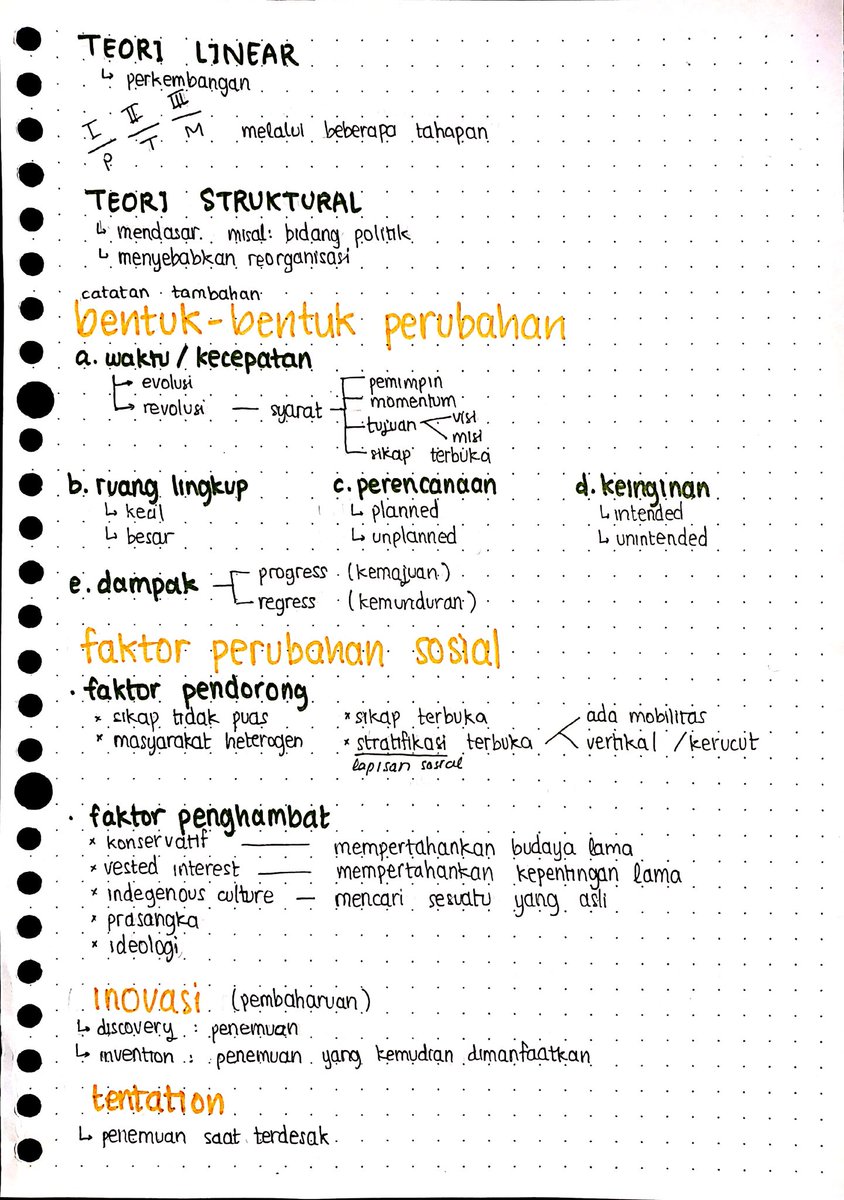 TEORI LINEAR
↳ perkembangan
I II III
P T M melalui beberapa tahapan
TEORI STRUKTURAL
↳ mendasar. misal: bidang politik
↳ menyebabkan reorganisasi
catatan tambahan
bentuk-bentuk perubahan
a. waktu / kecepatan
evolusi
revolusi — syarat
pemimpin
momentum
tujuan
visi
misi
sikap terbuka
b. ruang lingkup
↳ kecil
↳ besar
c. perencanaan
↳ planned
↳ unplanned
d. keinginan
↳ intended
↳ unintended
e. dampak
progress (kemajuan)
regress (kemunduran)
faktor perubahan sosial
· faktor pendorong
* sikap tidak puas
* masyarakat heterogen
* sikap terbuka
* stratifikasi terbuka
lapisan sosial
ada mobilitas
vertikal / kerucut
· faktor penghambat
* konservatif — mempertahankan budaya lama
* vested interest — mempertahankan kepentingan lama
* indegenous culture — mencari sesuatu yang asli
* prasangka
* ideologi
inovasi (pembaharuan)
↳ discovery : penemuan
↳ invention : penemuan yang kemudian dimanfaatkan
tentation
↳ penemuan saat terdesak